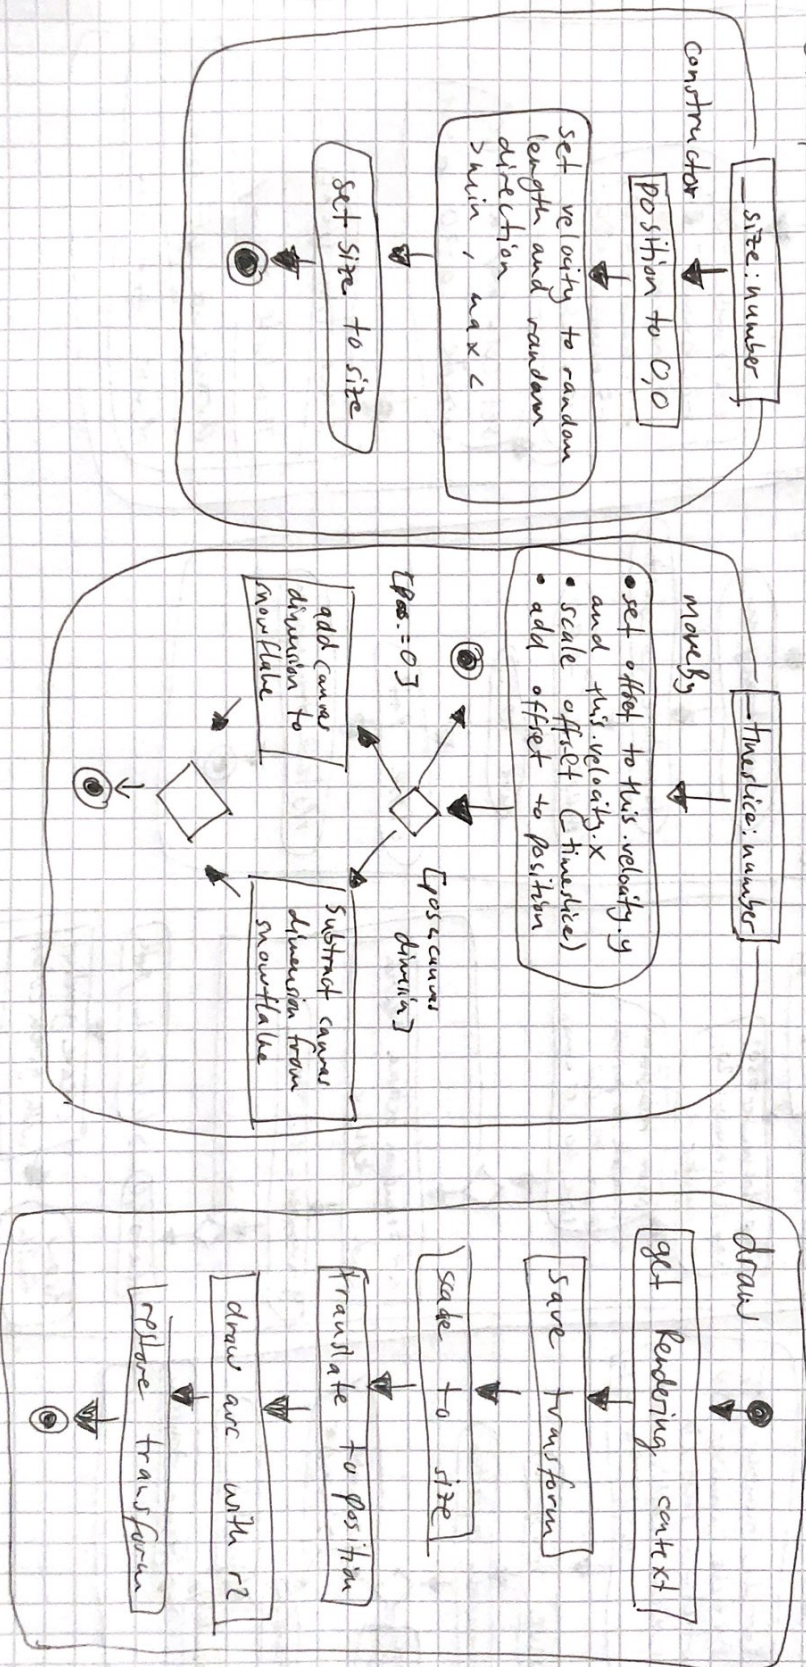 _size: number
constructor
position to 0,0
set velocity to random
length and random
direction
>min, max<
set size to size
_timeslice: number
moveBy
• set offset to this.velocity.y
and this.velocity.x
• scale offset (timeslice)
• add offset to position
[pos.=0]
add canvas
dimension to
snowflake
[pos<canvas
dimension]
Subtract canvas
dimension from
snowflake
draw
get Rendering context
Save transform
scale to size
translate to position
draw arc with r2
restore transform